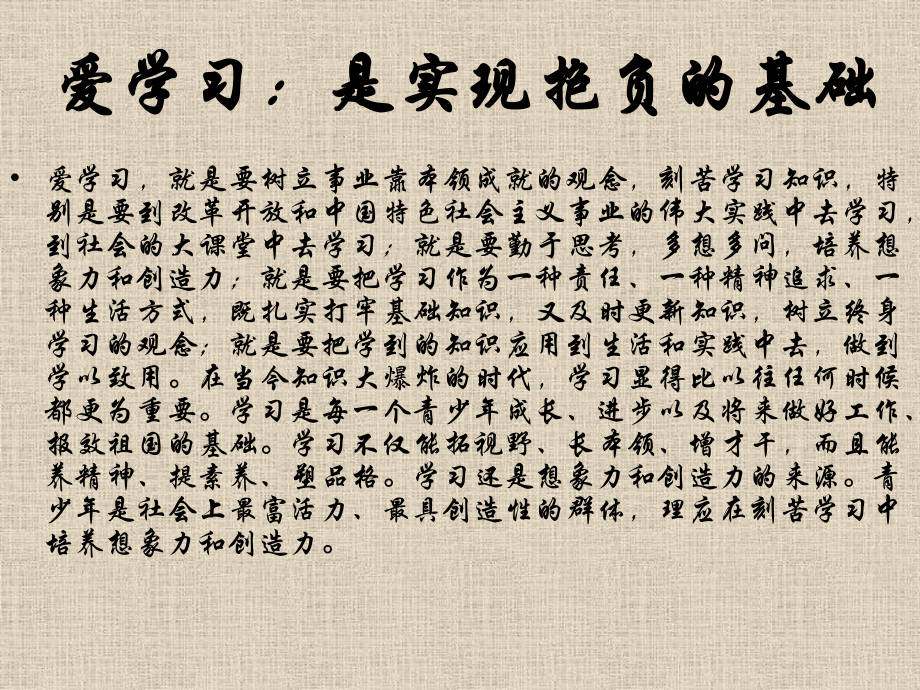 爱学习：是实现抱负的基础
• 爱学习，就是要树立事业靠本领成就的观念，刻苦学习知识，特
别是要到改革开放和中国特色社会主义事业的伟大实践中去学习，
到社会的大课堂中去学习；就是要勤于思考，多想多问，培养想
象力和创造力；就是要把学习作为一种责任、一种精神追求、一
种生活方式，既扎实打牢基础知识，又及时更新知识，树立终身
学习的观念；就是要把学到的知识应用到生活和实践中去，做到
学以致用。在当今知识大爆炸的时代，学习显得比以往任何时候
都更为重要。学习是每一个青少年成长、进步以及将来做好工作、
报效祖国的基础。学习不仅能拓视野、长本领、增才干，而且能
养精神、提素养、塑品格。学习还是想象力和创造力的来源。青
少年是社会上最富活力、最具创造性的群体，理应在刻苦学习中
培养想象力和创造力。